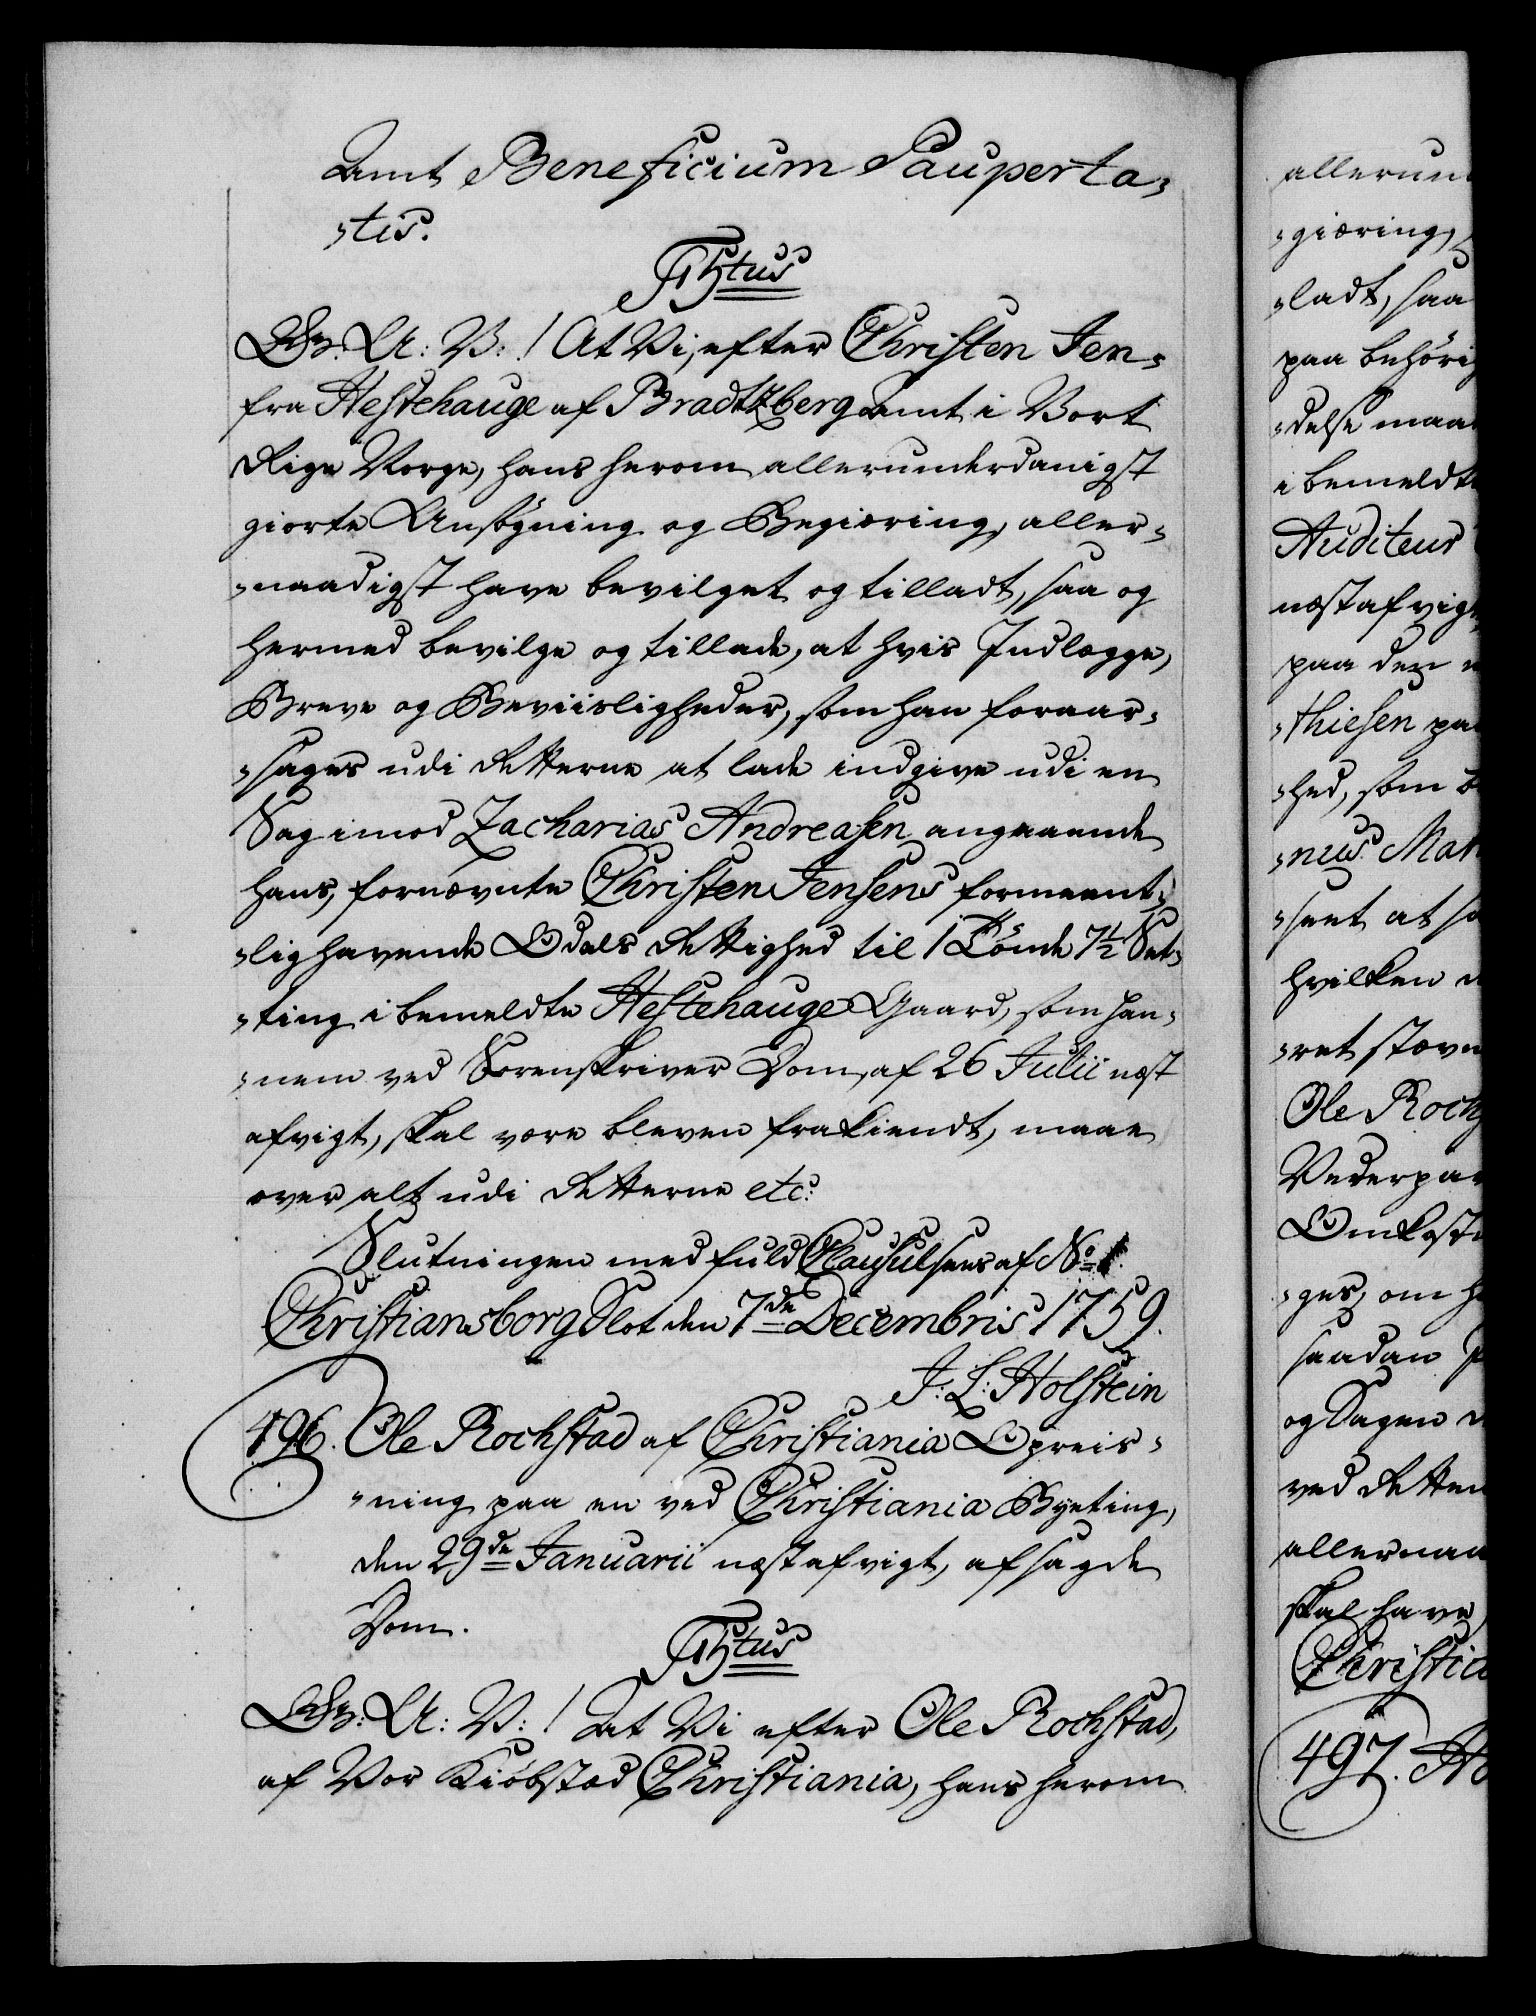 Amt Beneficium Pauperta-
-tis.
F5tus
Gr: A: V: ! At Vi, efter Christen Jen-
fra Hestehauge af Bradtzberg Amt i Vort
Rige Norge, hans herom allerunderdanigst
giorte Ansøgning og Begiæring, aller-
-naadigst have bevilget og tilladt, saa og
hermed bevilge og tillade, at hvis Indlægge,
Breve og Beviisligheder, som han foraar-
-sages udi Retterne at lade indgive udi en
Sag imod Zacharias Andreasen angaaende
hans, fornævnte Christen Jensens formeent-
-lig havende Odels Rettighed til 1 Tønde 7½ Set-
-ting i bemeldte Hestehauge Gaard, som han-
-nem ved Sorenskriver Dom, af 26 Julii næst
afvigt, skal være bleven frakiendt, maae
over alt udi Retterne etc:
Slutningen med fuld Clausul sees af No 1.
Christiansborg Slot den 7de Decembris 1759.
J: L: Holstein
496. Ole Rochstad af Christiania Opreis-
-ning paa en ved Christiania Byeting,
den 29de Januarii næstafvigt, afsagde
Dom.
F5tus
Gr: A: V: ! At Vi efter Ole Rochstad,
af Vor Kiøbstad Christiania, hans herom
allerun
-giæring,
-ladt, saa
paa behøri
-delse maa
i bemeldte
Auditeur
næstafvig
paa den
-thiesen pa
-hed, som
-nus Mat
-sent at s
hvilken
-ret stævn
Ole Roch
Vederpar
Omkost
-ges, om h
saadan
og Sagen
ved Retten
allernaa
skal have,
Christia
497. Ho